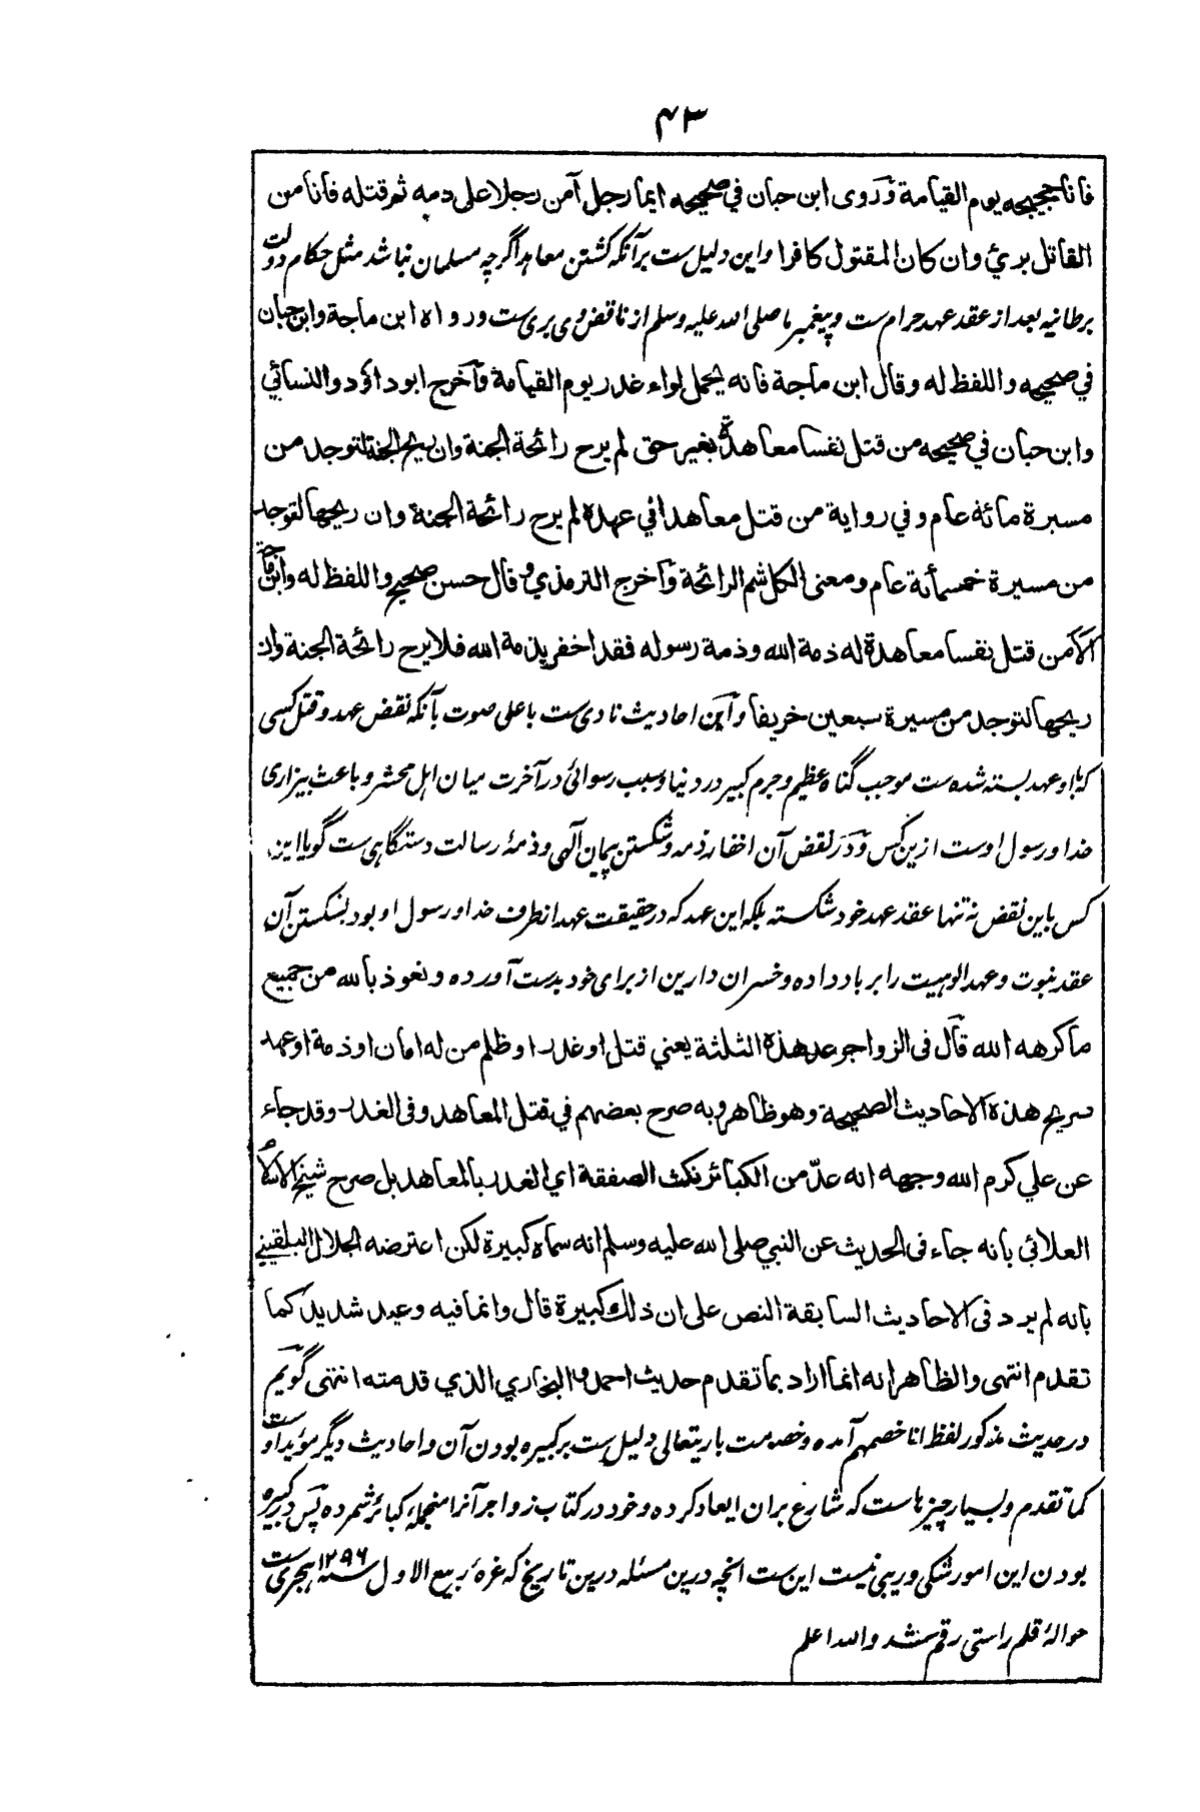 ۴۳
فانا حجيجه يوم القيامة وروى ابن حبان في صحيحه ايما رجل آمن رجلا على دمه ثم قتله فانا من
القاتل بريء وان كان المقتول كافرا واین دلیل ست برآنکه کشتن معاهد اگرچه مسلمان نباشد مثل حکام دولت
برطانیه بعد از عقد عهد حرام ست و پیغمبر ما صلی الله علیه وسلم از ناقض وی بری ست ورواه ابن ماجة وابن حبان
في صحيحه واللفظ له وقال ابن ماجة فانه يحمل لواء غدر يوم القيامة وأخرج ابو داؤد والنسائي
وابن حبان في صحيحه من قتل نفسا معاهدة بغير حق لم يرح رائحة الجنة وان ريح الجنة لتوجد من
مسيرة مائة عام وفي رواية من قتل معاهدا في عهدة لم يرح رائحة الجنة وان ريحها لتوجد
من مسيرة خمسمأئة عام ومعنى الكل شم الرائحة وأخرج الترمذي وقال حسن صحيح واللفظ له وابن ماجة
الا من قتل نفسا معاهدة له ذمة الله وذمة رسوله فقد اخفر بذمة الله فلا يرح رائحة الجنة وان
ريحها لتوجد من مسيرة سبعين خريفا واین احادیث نادی ست باعلی صوت بآنکه نقض عهد و قتل کسی
که با او عهد بسته شده ست موجب گناه عظیم و جرم کبیر در دنیا و سبب رسوائی در آخرت میان اهل محشر و باعث بیزاری
خدا و رسول اوست ازین کس و در نقض آن اخفار ذمه و شکستن پیمان آلهی و ذمۀ رسالت دستگاهی ست گویا این
کس باین نقض نه تنها عقد عهد خود شکسته بلکه این عهد که در حقیقت عهد از طرف خدا و رسول او بود بشکستن آن
عقد نبوت و عهد الوهیت را بر باد داده و خسران دارین از برای خود بدست آورده ونعوذ بالله من جميع
ما كرهه الله قال فى الزواجر عد هذه الثلثة يعني قتل او غدر او ظلم من له امان او ذمة او عهد
صريح هذه الاحاديث الصحيحة وهو ظاهر وبه صرح بعضهم في قتل المعاهد وفى الغدر وقد جاء
عن علي كرم الله وجهه انه عدّ من الكبائر نكث الصفقة اي الغدر بالمعاهد بل صرح شيخ الاسلام
العلائي بانه جاء فى الحديث عن النبي صلى الله عليه وسلم انه سماه كبيرة لكن اعترضه الجلال البلقيني
بانه لم يرد فى الاحاديث السابقة النص على ان ذلك كبيرة قال وانما فيه وعيد شديد كما
تقدم انتهى والظاهر انه انما اراد بما تقدم حديث احمد والبخاري الذي قدمته انتهى گویم
در حدیث مذکور لفظ انا خصمهم آمده و خصومت باریتعالی دلیل ست بر کبیره بودن آن و احادیث دیگر مؤید اوست
کما تقدم و بسیار چیزهاست که شارع بران ایعاد کرده و خود در کتاب زواجر آنرا منجملۀ کبائر شمرده پس در کبیره
بودن این امور شکی و ریبی نیست این ست انچه درین مسئله درین تاریخ که غرۀ ربیع الاول سنه ۱۲۹۶ هجری ست
حوالۀ قلم راستی رقم شد والله اعلم